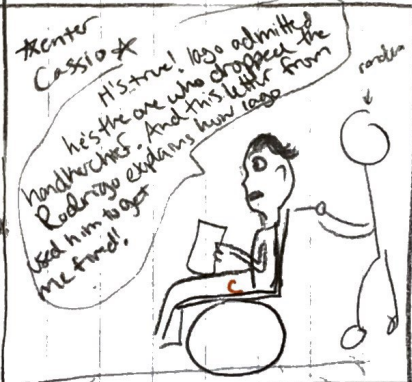 *enter
Cassio*
It's true! Iago admitted
he's the one who dropped the
handkerchief. And this letter from
Rodrigo explains how Iago
used him to get
me fired!
random
C